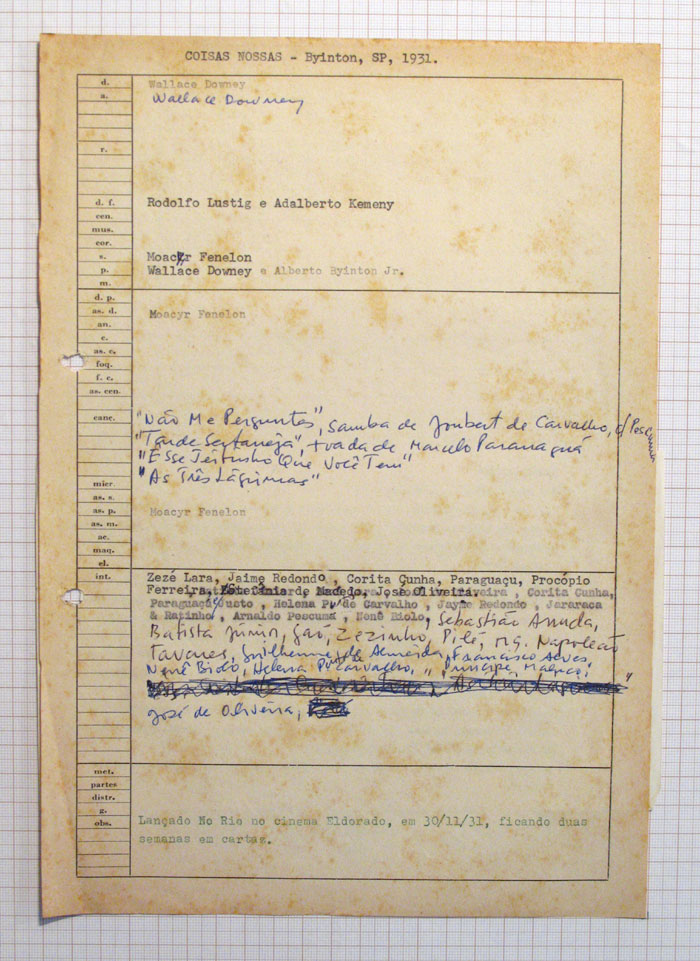 COISAS NOSSAS - Byinton, SP, 1931.
d. Wallace Downey
a. Wallace Downey
r.
d. f. Rodolfo Lustig e Adalberto Kemeny
cen.
mus.
cor.
s. Moacyr Fenelon
p. Wallace Downey e Alberto Byinton Jr.
m.
d. p.
as. d. Moacyr Fenelon
an.
c.
as. c.
foq.
f. c.
as. cen.
canç. "Não Me Perguntes", samba de Joubert de Carvalho, c/ Pescuma
"Tarde Sertaneja", toada de Marcelo Paranaguá
"Esse Jeitinho Que Você Tem"
"As Três Lágrimas"
micr.
as. s.
as. p. Moacyr Fenelon
as. m.
ac.
maq.
el.
int. Zezé Lara, Jaime Redondo, Corita Cunha, Paraguaçu, Procópio
Ferreira, Stefânia de Macedo, José Oliveira. , Corita Cunha,
Paraguaçú Gusto, Helena Pº de Carvalho, Jayme Redondo, Jararaca
& Ratinho, Arnaldo Pescuma, Nenê Biolo, Sebastião Arruda,
Batista Júnior, Gaó, Zezinho, Pilé, Napoleão
Tavares, Guilherme de Almeida, Francisco Alves
Nenê Bioló, Helena Pº de Carvalho, "Príncipe Maluco"
José de Oliveira,
met.
partes
distr.
g.
obs. Lançado No Rio no cinema Eldorado, em 30/11/31, ficando duas
semanas em cartaz.